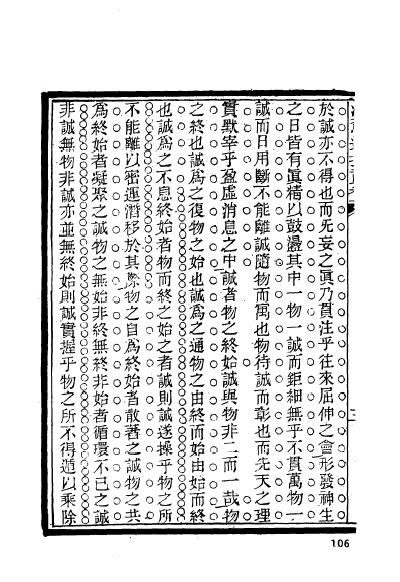 於誠亦不得也而旡妄之眞乃貫注乎往來屈伸之會形發神生
之日皆有眞精以鼓盪其中一物一誠而鉅細無乎不貫萬物一
誠而日用斷不能離誠隨物而寓也物待誠而彰也而先天之理
實默宰乎盈虛消息之中誠者物之終始誠與物非二而一哉物
之終也誠爲之復物之始也誠爲之通物之由終而始由始而終
也誠爲之不息終始者物而終之始之者誠則誠遂操乎物之所
不能離以密運潛移於其際物之自爲終始者散著之誠物之共
爲終始者凝聚之誠物之無始非終無終非始者循環不已之誠
非誠無物非誠亦並無終始則誠實握乎物之所不得遁以乘除
106